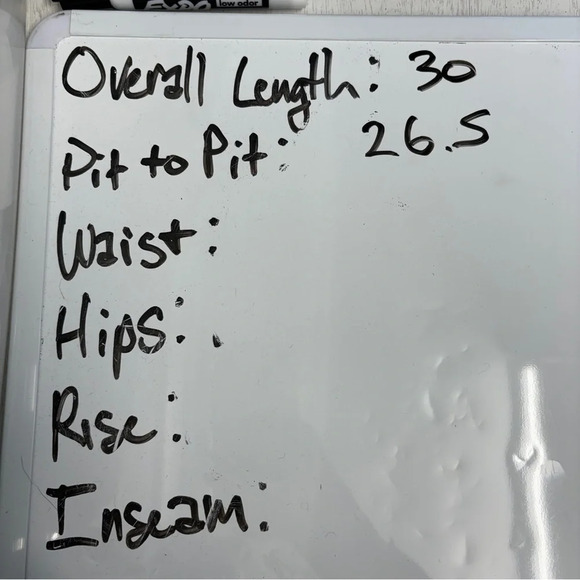 EXPO low odor
Overall Length: 30
Pit to Pit: 26.5
Waist:
Hips:
Rise:
Inseam: